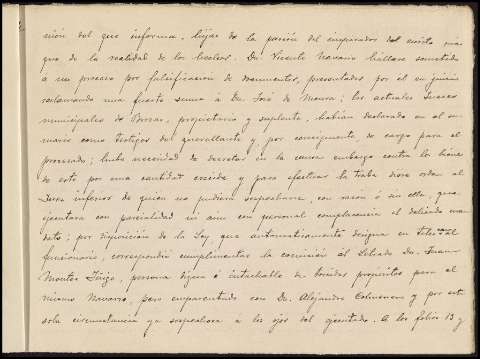 sión del que informa, hijas de la pasión del amparador del escrito más
que de la realidad de los hechos. Dn. Vicente Navarro hállase sometido
a un proceso por falsificación de documentos, presentados por él en juicio
reclamando una fuerte suma á Dn. José de Moura; los actuales Jueces
municipales de propietario y suplente, habían declarado en el su-
mario como testigos del querellante y, por consiguiente, de cargo para el
procesado; hubo necesidad de decretar en la causa embargo contra los bienes
de éste, por una cantidad crecida y para efectuar la traba diose orden al
Juez inferior de quien no pudiera sospecharse, con razón ó sin ella, que
ejecutara con parcialidad ni aun con personal complacencia el debido man-
dato; por disposición de la Ley, que automáticamente designa en tal al
funcionario, correspondió cumplimentar la comisión al Letrado Dn. Juan
Montes Íñigo, persona digna é intachable de honrados propósitos para el
mismo Navarro, pero emparentado con Dn. Alejandro y por esta
sola circunstancia ya sospechoso á los ojos del ejecutado. A los folios 13 y